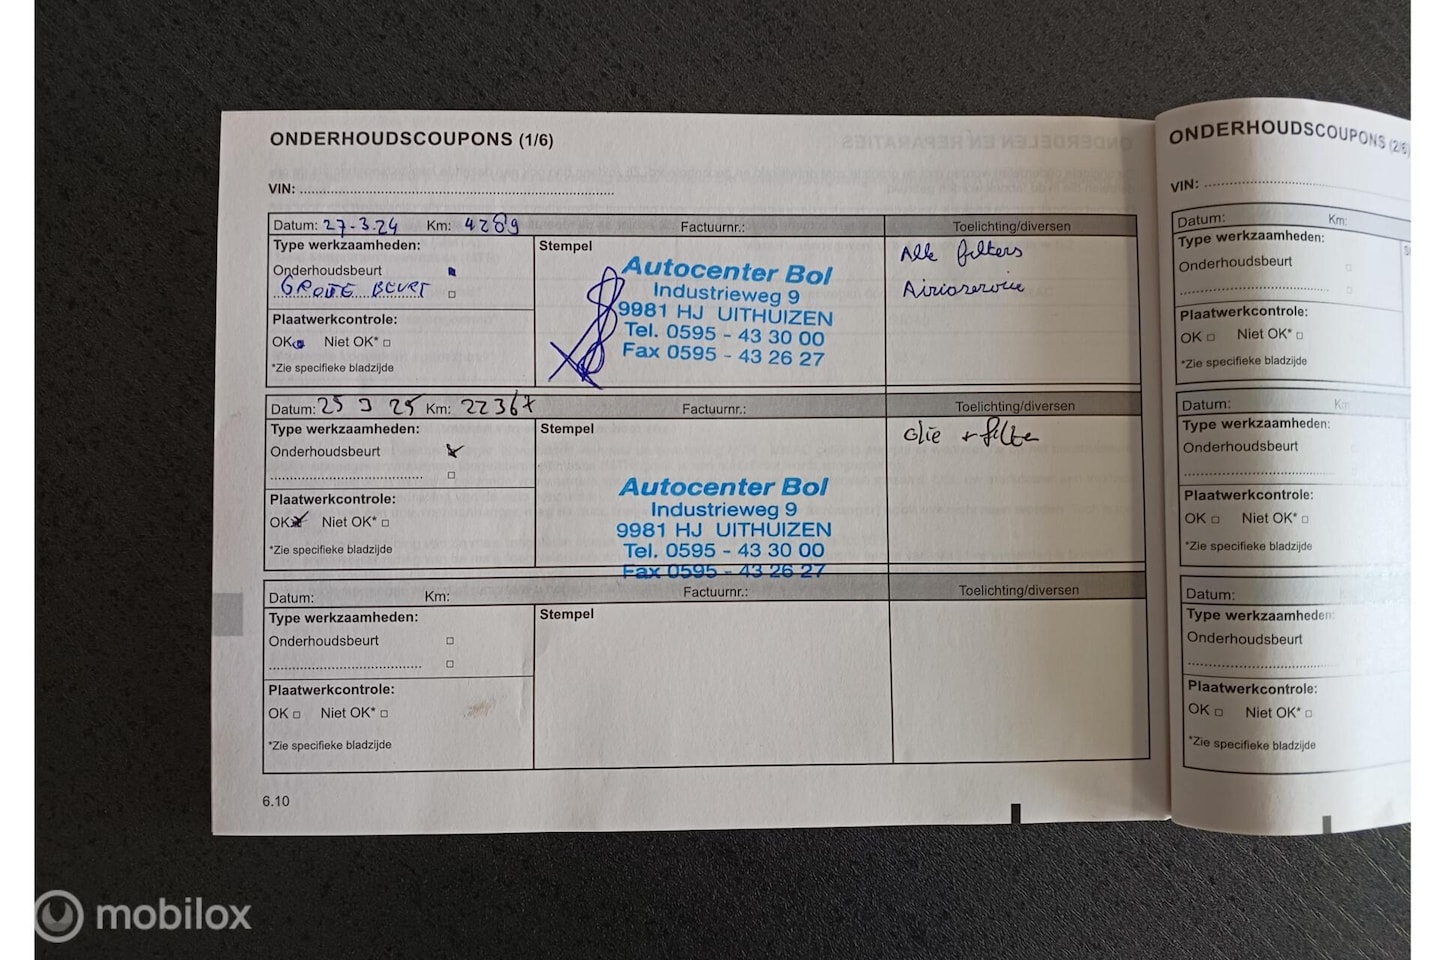 ONDERHOUDSCOUPONS (1/6)
VIN:
Datum: 27-3.24 Km: 4289 Factuurnr.: Toelichting/diversen
Type werkzaamheden:
Onderhoudsbeurt
GROTE BEURT
Plaatwerkcontrole:
OK Niet OK*
*Zie specifieke bladzijde
Stempel
Autocenter Bol
Industrieweg 9
9981 HJ UITHUIZEN
Tel. 0595 - 43 30 00
Fax 0595 - 43 26 27
Alle filters
Aircoservice
Datum: 25 3 25 Km: 22367 Factuurnr.: Toelichting/diversen
Type werkzaamheden:
Onderhoudsbeurt
Plaatwerkcontrole:
OK Niet OK*
*Zie specifieke bladzijde
Stempel
Autocenter Bol
Industrieweg 9
9981 HJ UITHUIZEN
Tel. 0595 - 43 30 00
Fax 0595 - 43 26 27
olie + filter
Datum: Km: Factuurnr.: Toelichting/diversen
Type werkzaamheden:
Onderhoudsbeurt
Plaatwerkcontrole:
OK Niet OK*
*Zie specifieke bladzijde
Stempel
6.10
ONDERHOUDSCOUPONS (2/6)
VIN:
Datum: Km:
Type werkzaamheden:
Onderhoudsbeurt
Plaatwerkcontrole:
OK Niet OK*
*Zie specifieke bladzijde
Datum: Km:
Type werkzaamheden:
Onderhoudsbeurt
Plaatwerkcontrole:
OK Niet OK*
*Zie specifieke bladzijde
Datum:
Type werkzaamheden:
Onderhoudsbeurt
Plaatwerkcontrole:
OK Niet OK*
*Zie specifieke bladzijde
mobilox